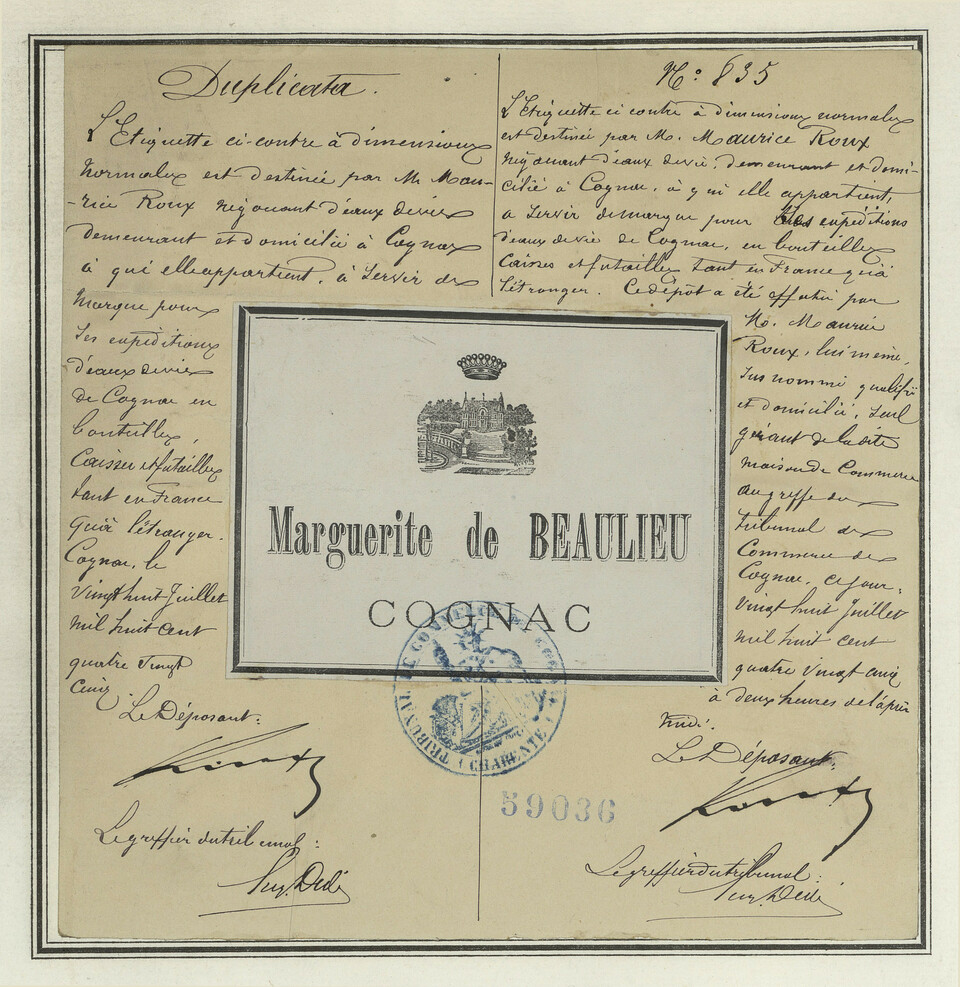 Duplicata.
L'Etiquette ci-contre à dimensions
Normales est destinée par M. Mau-
-rice Roux négociant d'eaux de vie
demeurant et domicilié à Cognac
à qui elle appartient, à servir de
marque pour
ses expéditions
d'eaux de vie
de Cognac en
bouteilles,
Caisses et futailles
tant en France
qu'à l'étranger.
Cognac, le
Vingt huit Juillet
mil huit cent
quatre vingt
Cinq.
Le Déposant:
Le greffier du tribunal:
N.o 835
L'Etiquette ci contre à dimensions normales
est destinée par M. Maurice Roux
négociant d'eaux de vie, demeurant et domi-
cilié à Cognac, à qui elle appartient,
à servir de marque pour ses expéditions
d'eaux de vie de Cognac, en bouteilles
Caisses et futailles tant en France qu'à
l'étranger. Ce dépôt a été effectué par
M. Maurice
Roux, lui même,
sus nommé qualifié
et domicilié, seul
gérant de la dite
maison de Commerce
au greffe du
tribunal de
Commerce de
Cognac, ce jour,
Vingt huit Juillet
mil huit cent
quatre vingt cinq
à deux heures de l'après
midi.
Le Déposant:
Le greffier du tribunal:
Marguerite de BEAULIEU
COGNAC
TRIBUNAL DE COMMERCE DE COGNAC
(CHARENTE)
59036